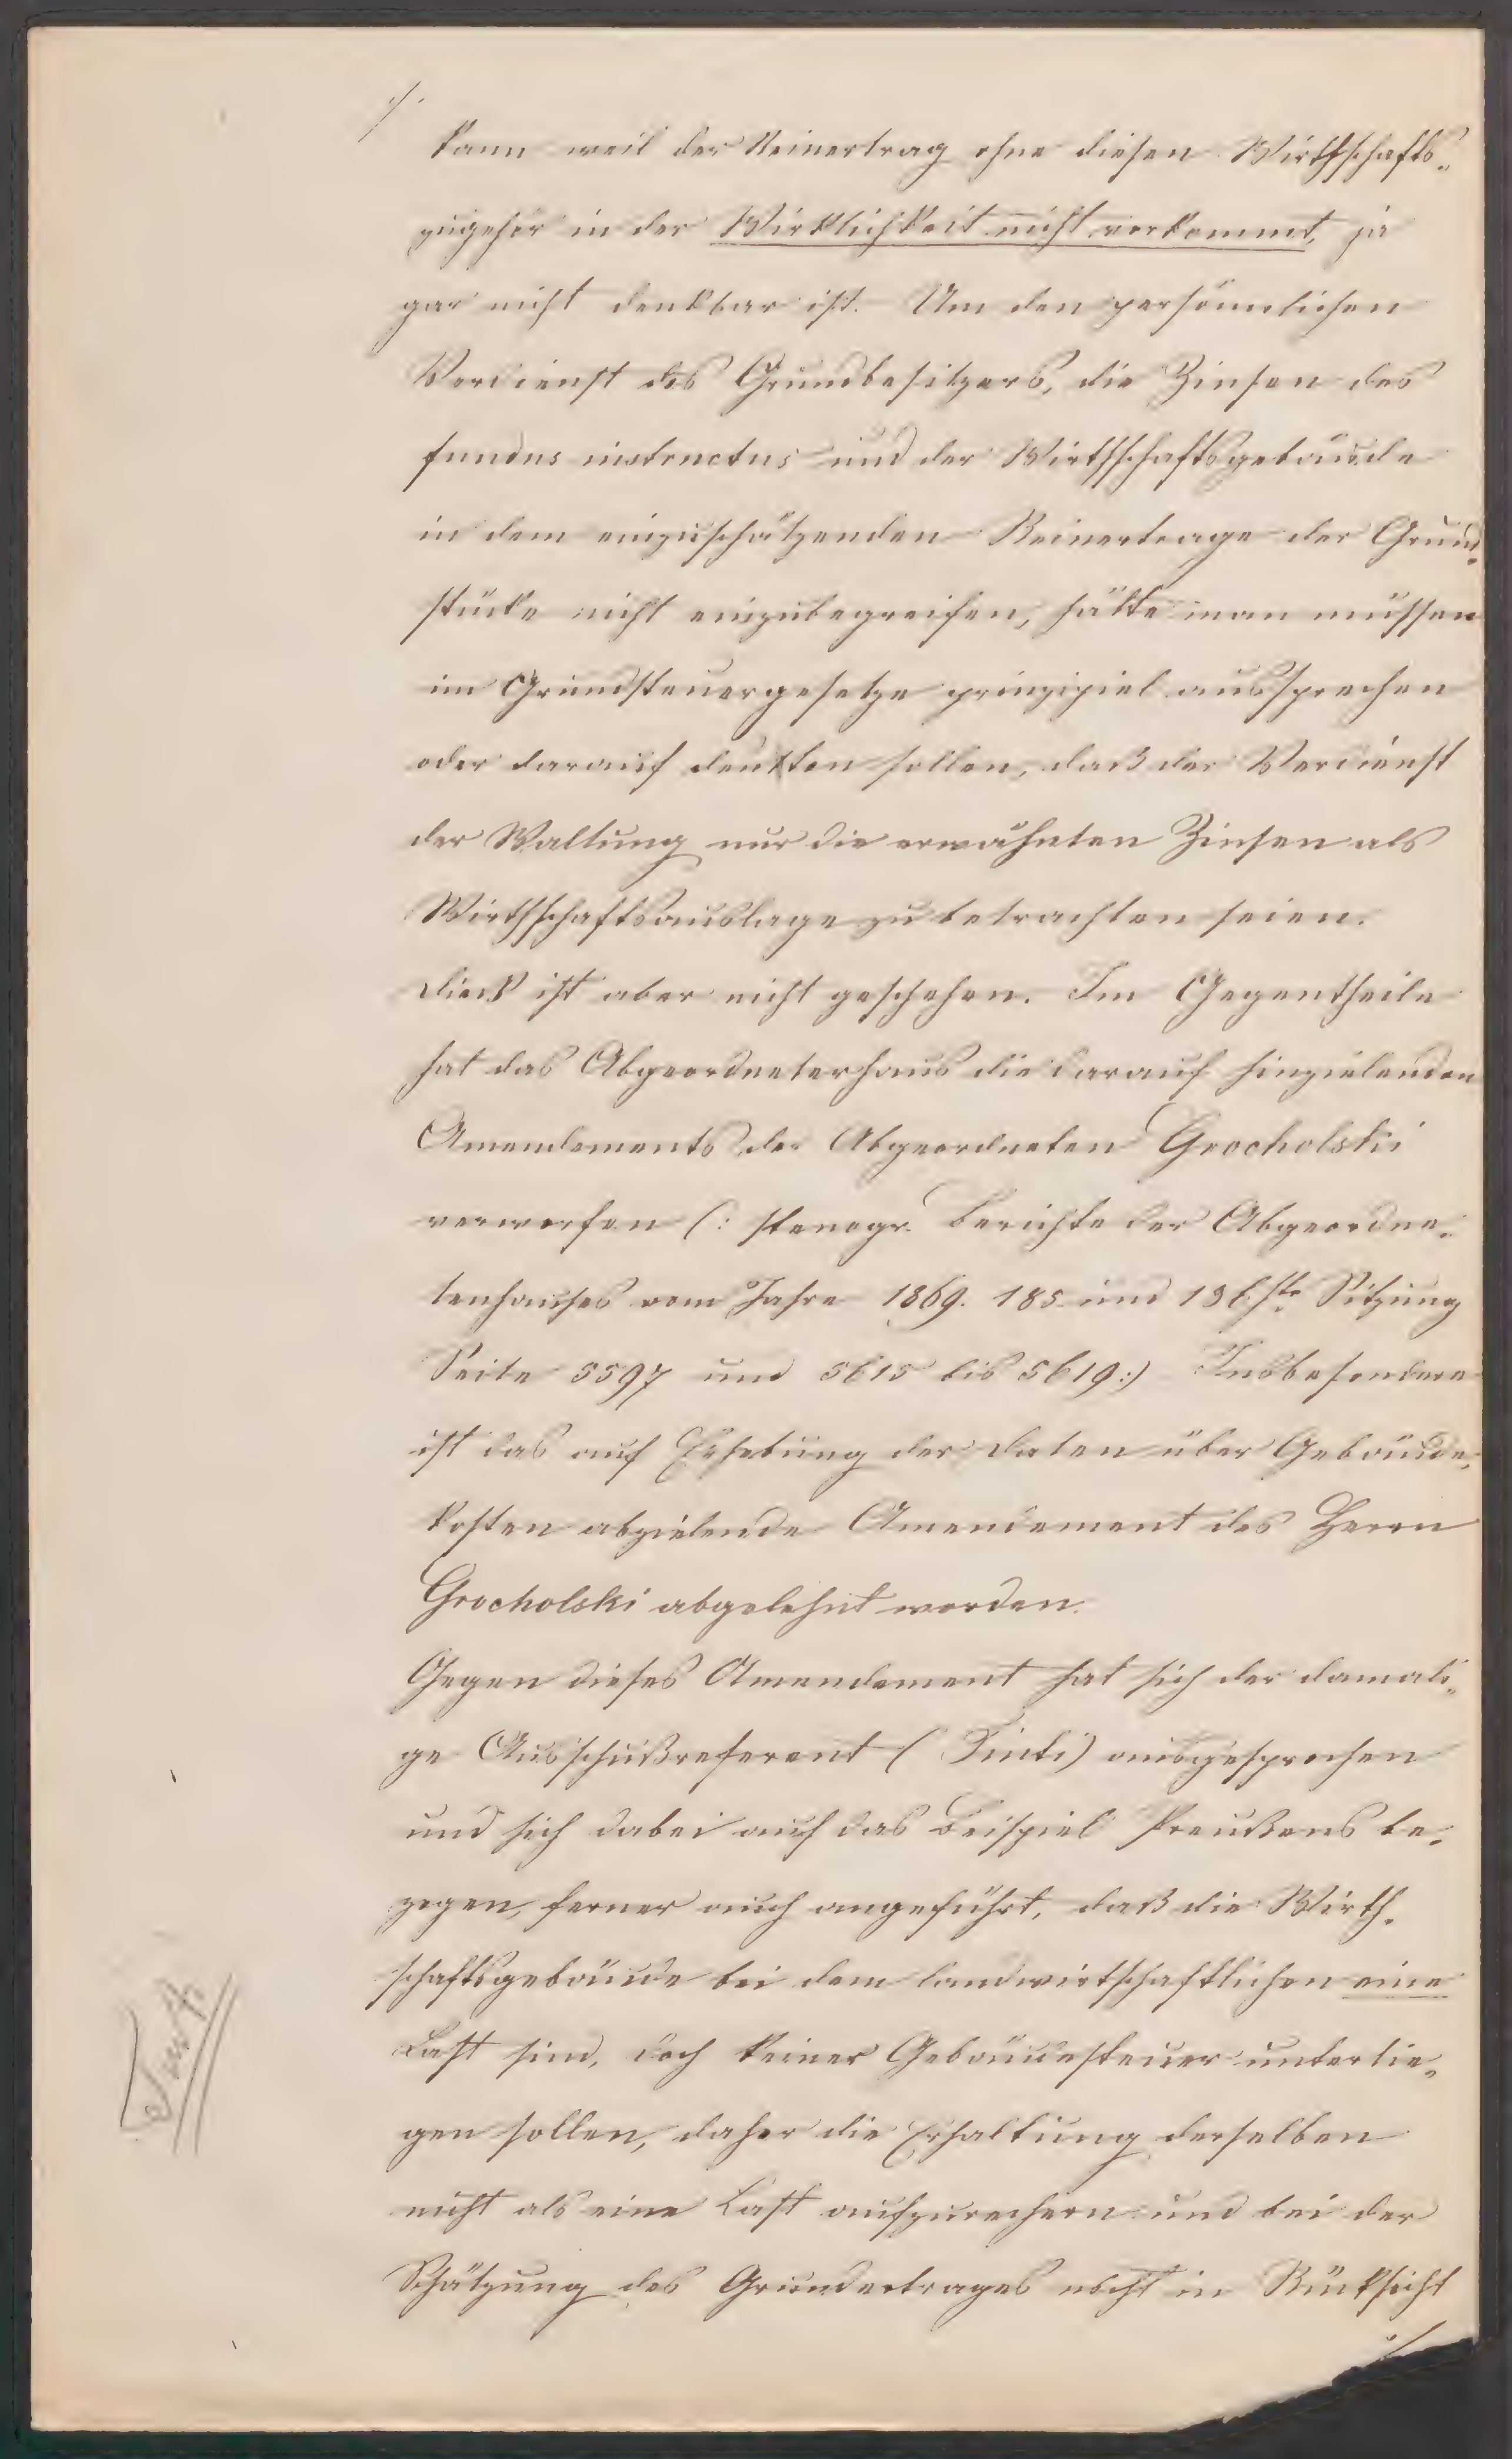 ./.
kann weil der Reinertrag ohne diesen Wirthschafts-
zugehör in der Wirklichkeit nicht vorkommt, ja
gar nicht denkbar ist. Um den persönnlichen
Verdienst des Grundbesitzers, die Zinsen des
fundus instructus und der Wirthschaftsgebäude
in dem einzuschätzenden Reinertrage der Grund-
stücke nicht einzubegreifen, hätte man müssen
im Grundsteuergesetze prinzipiel aussprechen
oder darauf deutten sollen, daß der Verdienst
der Waltung nur die erwähnten Zinsen als
Wirthschaftsauslage zu betrachten seien.
Dieß ist aber nicht geschehen. Im Gegentheile
hat das Abgeordneterhaus die darauf hinzielenden
Amendements des Abgeordneten Grocholski
verworfen (: stenogr. Berichte der Abgeordne-
tenhauses vom Jahre 1869. 185 und 186ste Sitzung
Seite 5597 und 5615 bis 5619:) Insbesondere
ist das auf Erhebung der Daten über Gebäude-
kosten abzielende Amendement des Herrn
Grocholski abgelehnt worden.
Gegen dieses Amendement hat sich der damali-
ge Ausschußreferent (Tinti) ausgesprochen
und sich dabei auf das Beispiel Preußens be-
zogen, ferner auch angeführt, daß die Wirth-
schaftsgebäude bei dem landwirtschaftlichen eine
Last sind, doch keiner Gebäudesteuer unterlie-
gen sollen, daher die Erhaltung derselben
nicht als eine Last aufzurechnen und bei der
Schätzung des Grundertrages nicht in Rücksicht
./.